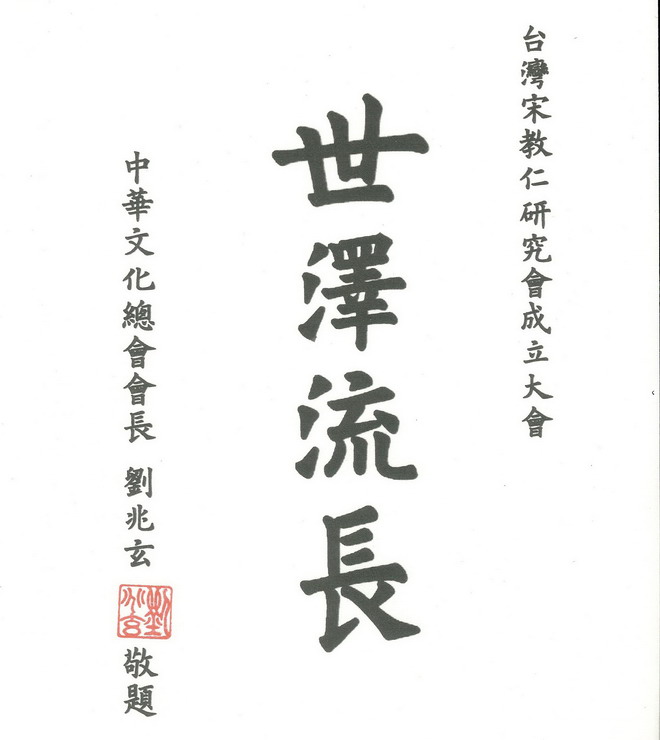 台灣宋教仁研究會成立大會
世澤流長
中華文化總會會長 劉兆玄
劉兆玄
敬題